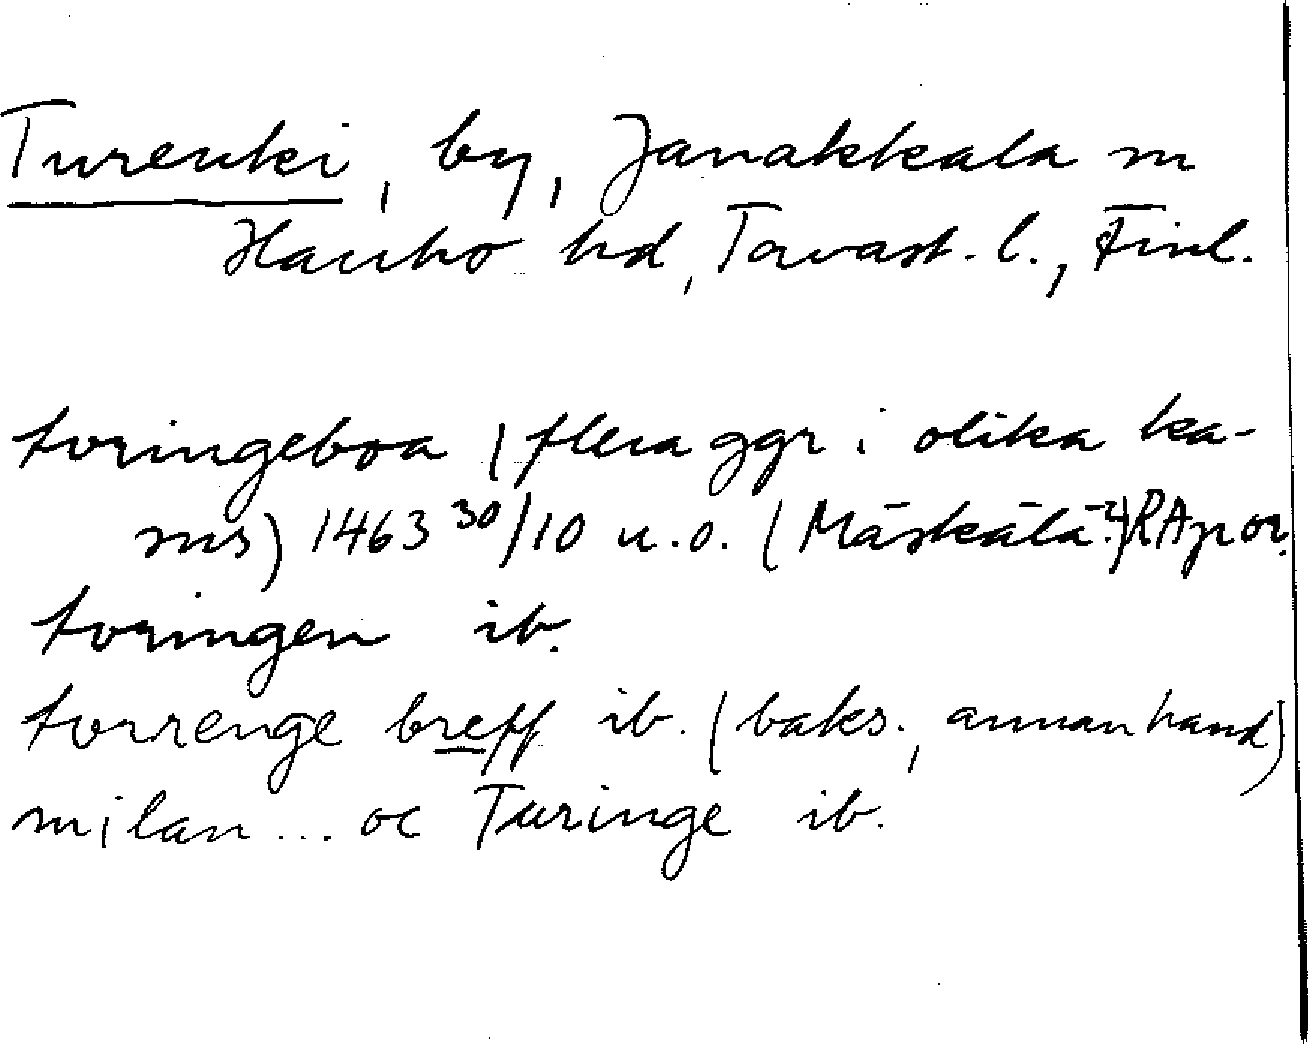 Turenki, by, Janakkala sn
Hauho hd, Tavast. l., Finl.
toringeboa (flera ggr i olika ka-
sus) 1463 30/10 u.o. (Mäskälä?) RAp or.
toringen ib.
torrenge breff ib. (baks., annan hand)
milan ... oc Turinge ib.